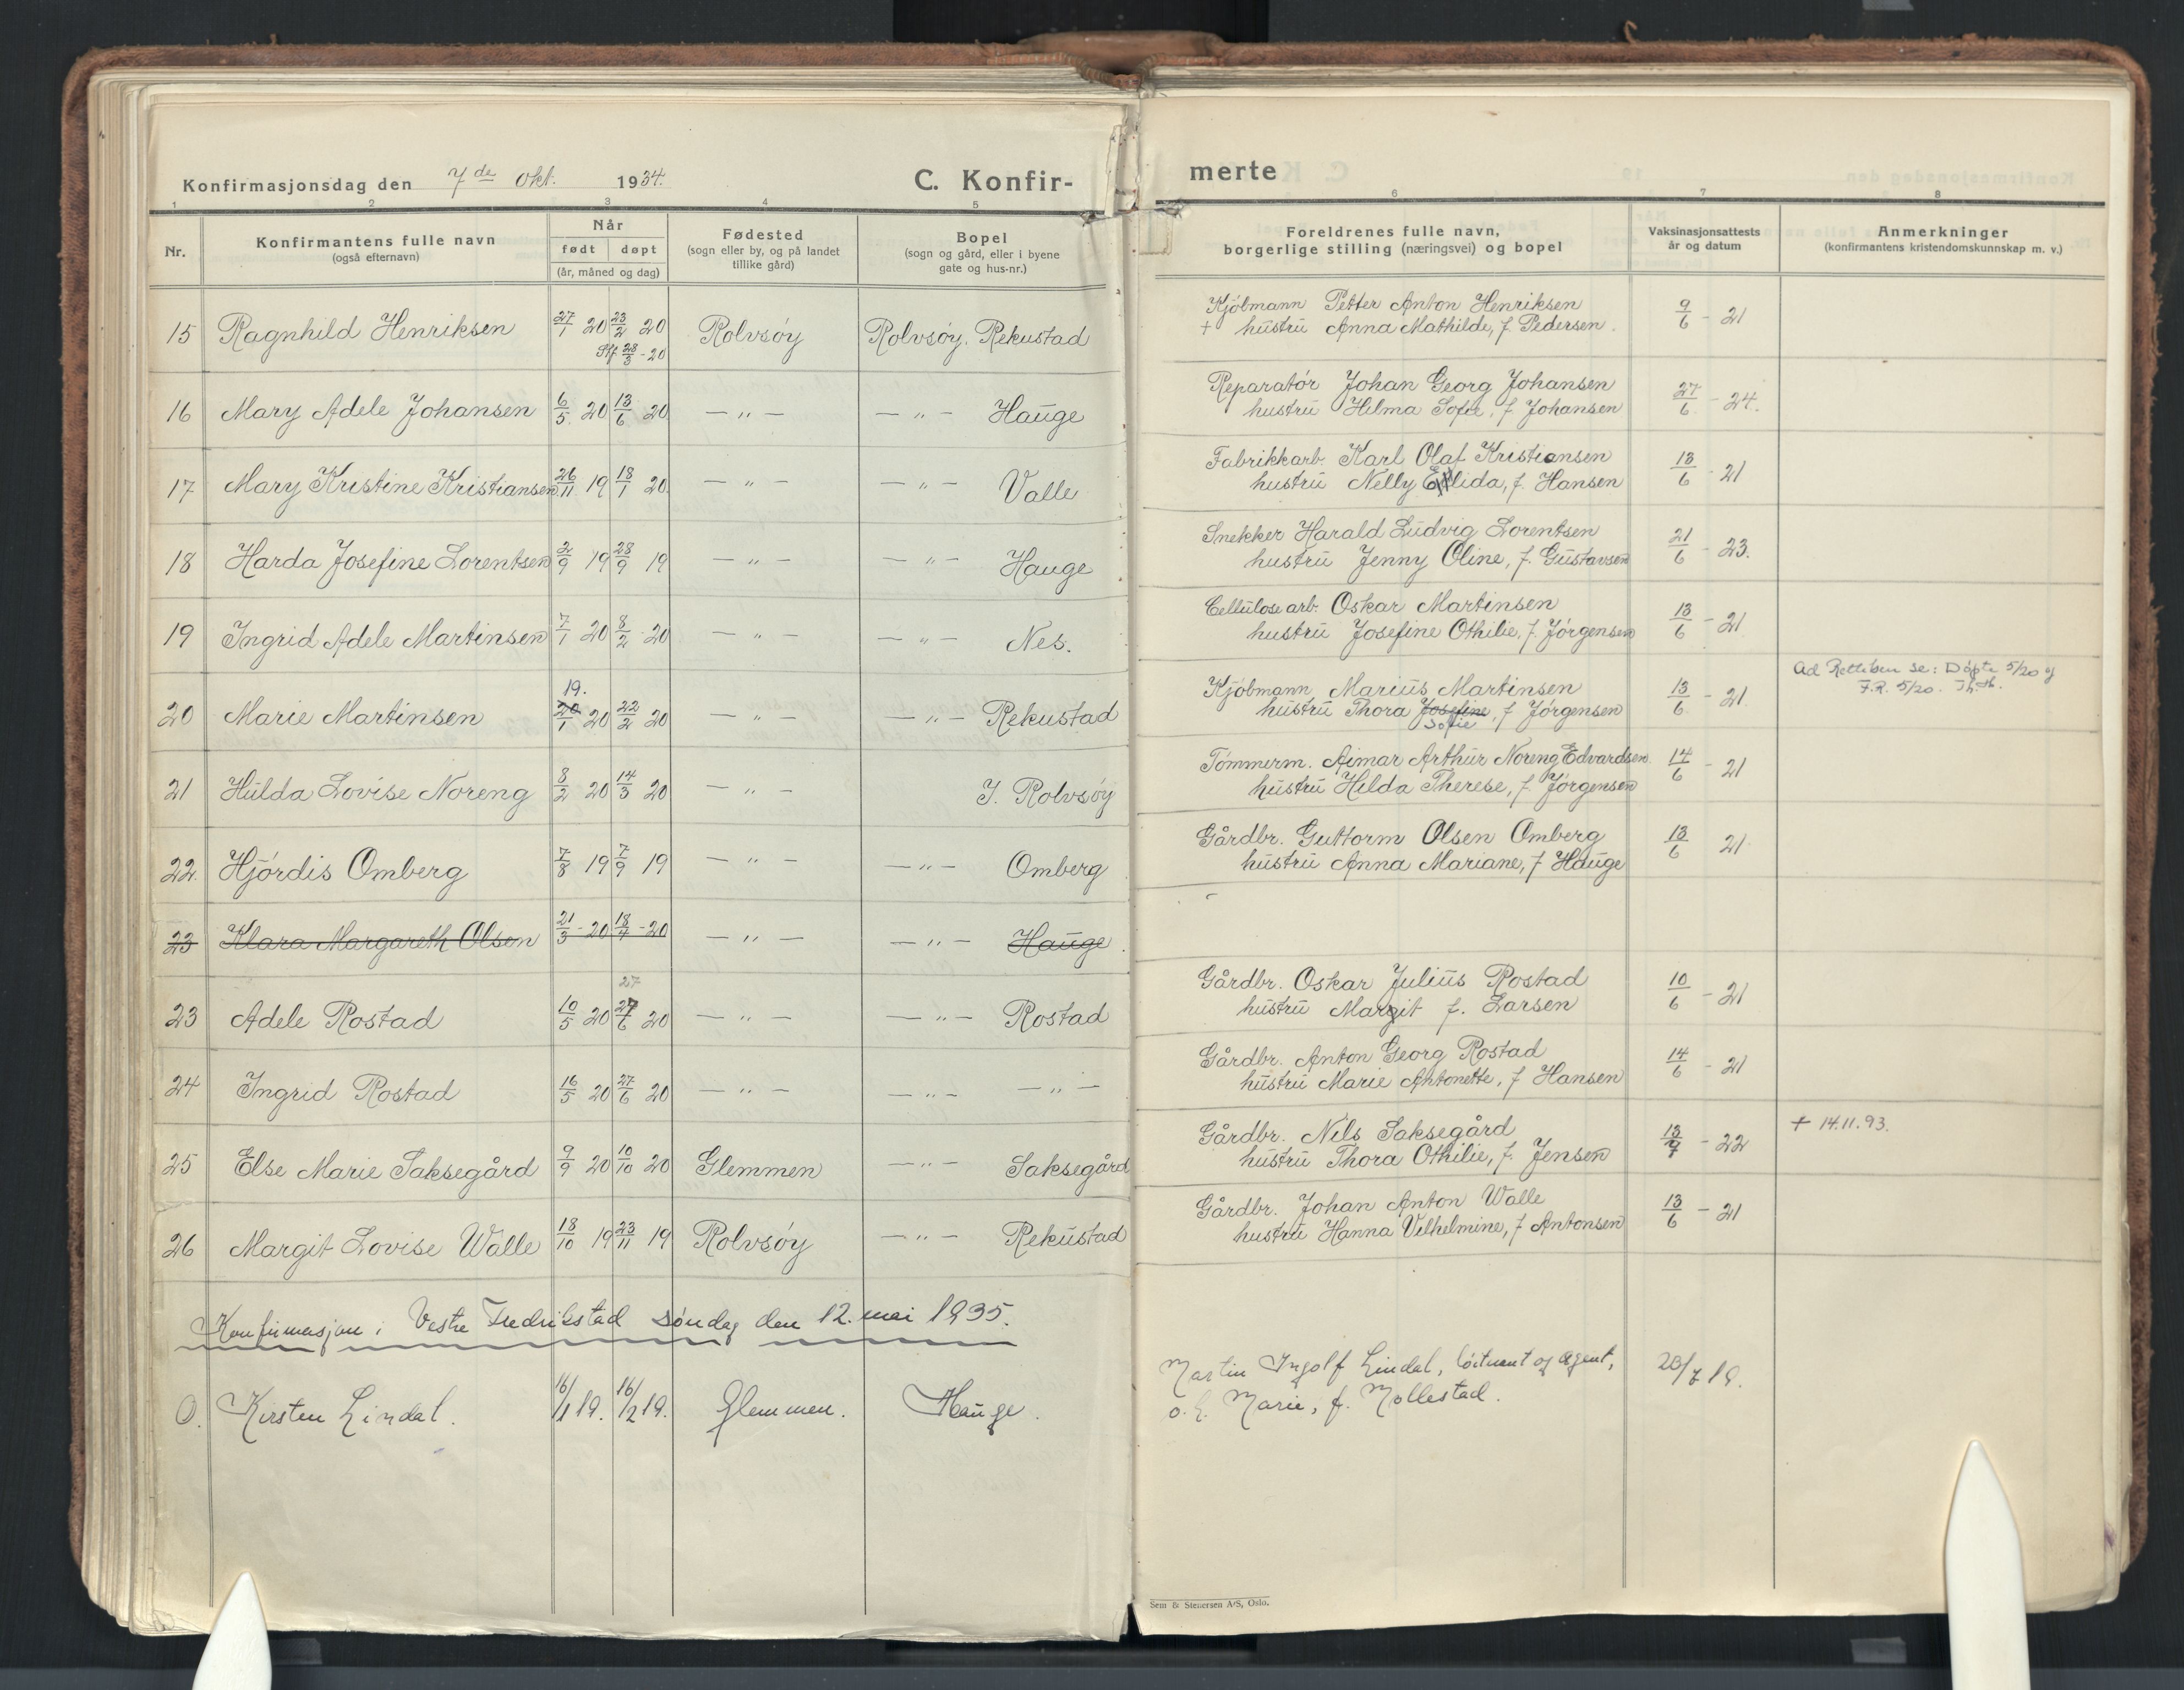 Konfirmasjonsdag den 7de Okt. 1934.
C. Konfir-
merte
1 2 3 4 5 6 7 8
Nr.
Konfirmantens fulle navn
(også efternavn)
Når
født døpt
(år, måned og dag)
Fødested
(sogn eller by, og på landet
tillike gård)
Bopel
(sogn og gård, eller i byene
gate og hus-nr.)
Foreldrenes fulle navn,
borgerlige stilling (næringsvei) og bopel
Vaksinasjonsattests
år og datum
Anmerkninger
(konfirmantens kristendomskunnskap m. v.)
15 Ragnhild Henriksen 27/1 20 23/2 20 Rolvsøy Rolvsøy. Rekustad
Stf 28/3 - 20
Kjøbmann Petter Anton Henriksen 9/6 - 21
+ hustru Anna Mathilde, f. Pedersen.
16 Mary Adele Johansen 6/5 20 13/6 20 — " — — " — Hauge
Reparatør Johan Georg Johansen 27/6 - 24.
hustru Hilma Sofie, f. Johansen
17 Mary Kristine Kristiansen 26/11 19 18/1 20 — " — — " — Valle
Fabrikkarb. Karl Olaf Kristiansen 13/6 - 21
hustru Nelly Ellida, f. Hansen
18 Harda Josefine Lorentsen 2/9 19 28/9 19 — " — — " — Hauge
Snekker Harald Ludvig Lorentsen 21/6 - 23.
hustru Jenny Oline, f. Gustavsen
19 Ingrid Adele Martinsen 7/1 20 8/2 20 — " — — " — Nes.
Cellulosearb. Oskar Martinsen 13/6 - 21
hustru Josefine Othilie, f. Jørgensen
19.
20 Marie Martinsen 20/1 20 22/2 20 — " — — " — Rekustad
Kjøbmann Marius Martinsen 13/6 - 21
hustru Thora Josefine, f Jørgensen
Sofie
Ad Rettelsen se: Døpte 5/20 og
F.R. 5/20. Th.Th.
21 Hulda Lovise Noreng 8/2 20 14/3 20 — " — I. Rolvsøy
Tømmerm. Aimar Arthur Noreng Edvardsen 14/6 - 21
hustru Hilda Therese, f. Jørgensen
22. Hjørdis Omberg 7/8 19 7/9 19 — " — — " — Omberg
Gårdbr. Guttorm Olsen Omberg 13/6 21
hustru Anna Mariane, f Hauge
23 Klara Margareth Olsen 21/3 - 20 18/4 - 20 — " — — " — Hauge
27
23 Adele Rostad 10/5 20 27/6 20 — " — — " — Rostad
Gårdbr. Oskar Julius Rostad 10/6 - 21
hustru Margit f. Larsen
24 Ingrid Rostad 16/5 20 27/6 20 — " — — " — — " —
Gårdbr. Anton Georg Rostad 14/6 - 21
hustru Marie Antonette, f Hansen
25 Else Marie Saksegård 9/9 20 10/10 20 Glemmen — " — Saksegård
Gårdbr. Nils Saksegård 13/7 - 22
hustru Thora Othilie, f. Jensen
+ 14.11.93.
26 Margit Lovise Walle 18/10 19 23/11 19 Rolvsøy — " — Rekustad
Gårdbr. Johan Anton Walle 13/6 - 21
hustru Hanna Vilhelmine, f Antonsen
Konfirmasjon i Vestre Fredrikstad søndag den 12. mai 1935.
O. Kirsten Lindal. 16/1 19. 16/2 19. Glemmen. Hauge.
Martin Ingolf Lindal, løitnant og agent, 23/7 19.
o. h. Marie, f. Mollestad.
Sem & Stenersen A/S, Oslo.